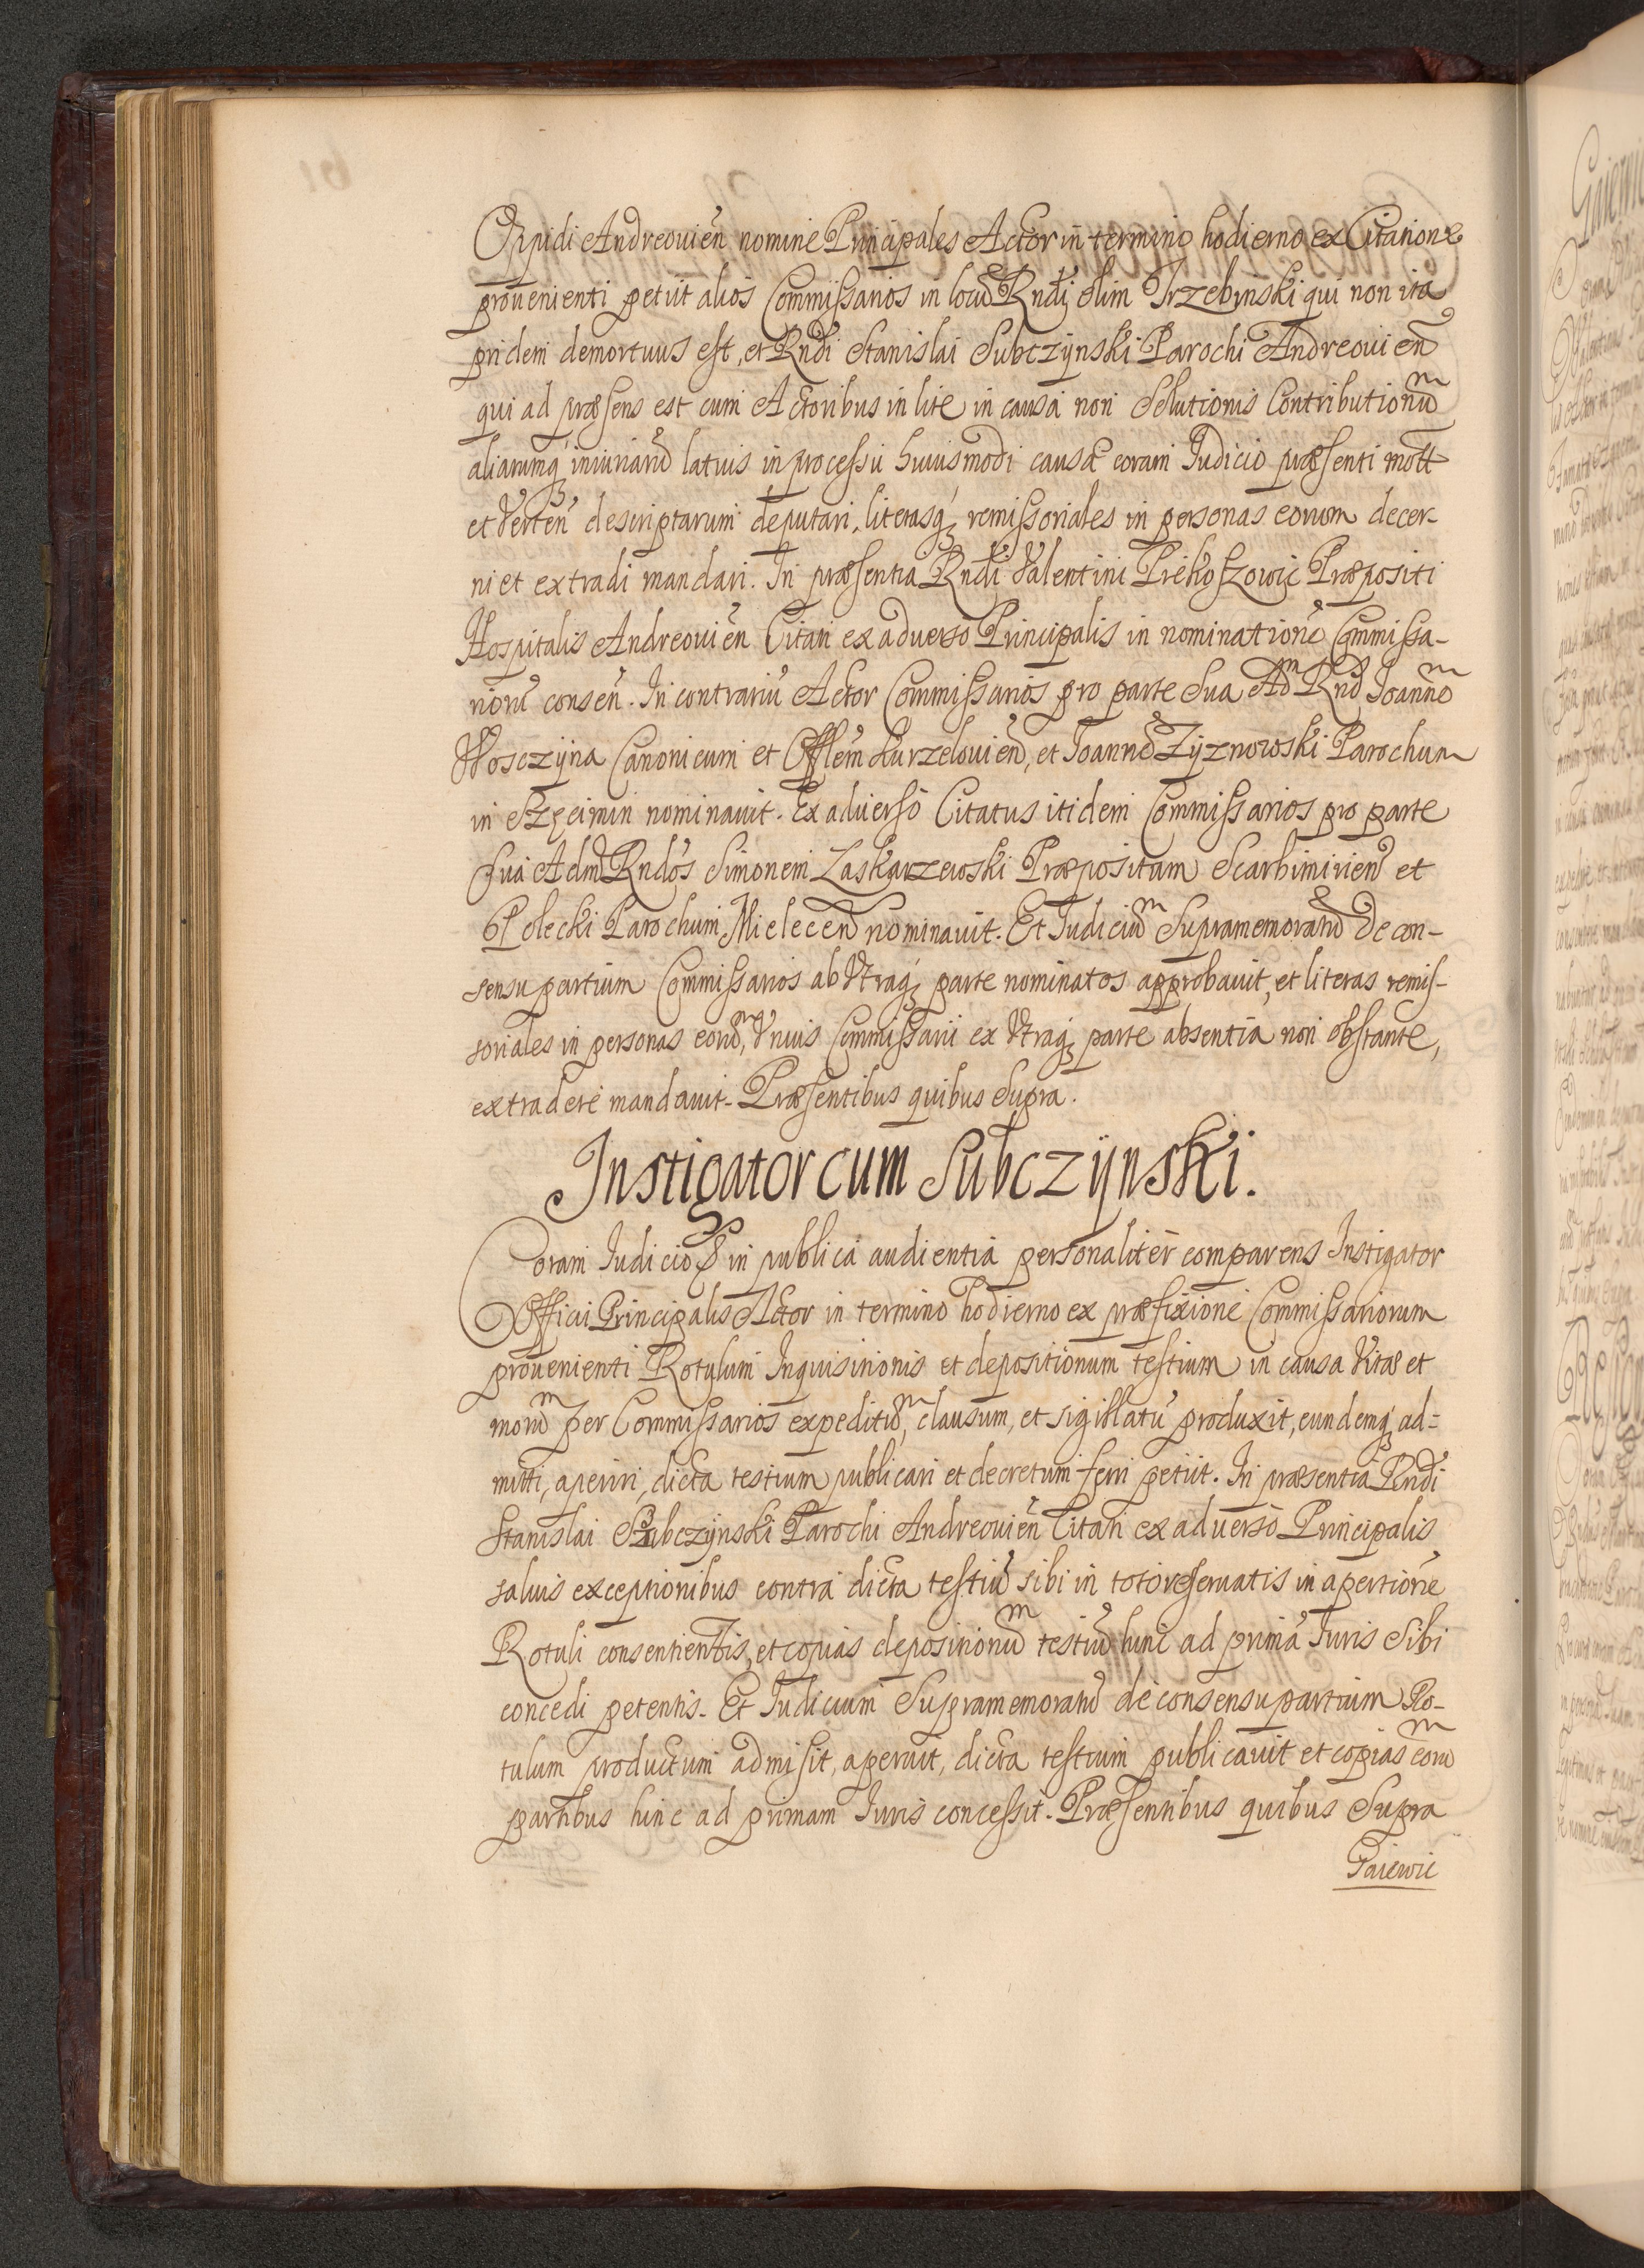 Oppidi Andreouień nomine Principales Actor in termino hodierno ex Citatione
prouenienti petiit alios Commissarios in locū Rndi olim Trzebinski qui non ita
pridem demortuus est, et Rndi Stanislai Subczÿnski Parochi Andreouień
qui ad præsens est cum Actoribus in lite in causa non Solutionis Contributionū
aliarumq iniuriarū latius in processu huiusmodi causæ coram Iudicio præsenti mott
et Verteń descriptarum deputari, literasq remissoriales in personas eorum decer-
ni et extradi mandari. In præsentia Rndi Valentini Præpositi
Hospitalis Andreouień Citati ex aduerso Principalis in nominatione Commissa-
riorū conseń. In contrariū Actor Commissarios pro parte Sua Adm Rnd Joannē
Wosczÿna Canonicum et Offlem Kurzelouień, et Joannē Zÿznowski Parochum
in nominauit. Ex aduerso Citatus itidem Commissarios pro parte
Sua Adm Rndos Simonem Laskarzewski Præpositum Scarbimirień et
Parochum Mieleceń nominauit. Et Iudiciū Supramemoratū De con-
sensu partium Commissarios ab Vtraq parte nominatos approbauit, et literas remis-
soriales in personas eorū, Vnius Commissarii ex Vtraq parte absentia non obstante,
extradere mandauit. Præsentibus quibus Supra.
Instigator cum Subczÿnski.
Coram Iudicio & in publica audientia personaliter comparens Instigator
Officii Principalis Actor in termino hodierno ex præfixione Commissariorum
prouenienti Rotulum Inquisitionis et depositionum testium in causa Vitæ et
morū per Commissarios expeditū, clausum, et sigillatū produxit, eundemq ad-
mitti, aperiri, dicta testium publicari et decretum ferri petiit. In præsentia Rndi
Stanislai Subczÿnski Parochi Andreouień Citati ex aduerso Principalis
saluis exceptionibus contra dicta testiū sibi in toto reseruatis in apertione
Rotuli consentientis, et copias depositionū testiū hinc ad primā Iuris Sibi
concedi petentis. Et Iudicium Supramemoratū de consensu partium Ro-
tulum productum admisit, aperuit, dicta testium publicauit et copias eorū
partibus hinc ad primam Iuris concessit. Præsentibus quibus Supra
Gaiewic